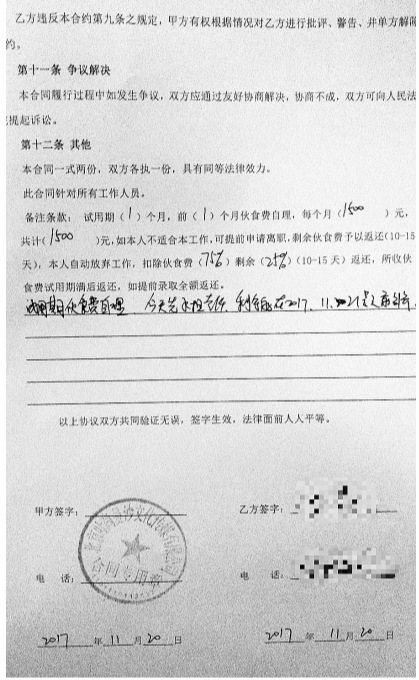 乙方违反本合约第九条之规定，甲方有权根据情况对乙方进行批评、警告、并单方解除
约。
第十一条 争议解决
本合同履行过程中如发生争议，双方应通过友好协商解决，协商不成，双方可向人民法
提起诉讼。
第十二条 其他
本合同一式两份，双方各执一份，具有同等法律效力。
此合同针对所有工作人员。
备注条款： 试用期（1）个月，前（1）个月伙食费自理，每个月（1500）元，
共计（1500）元，如本人不适合本工作，可提前申请离职，剩余伙食费予以返还（10-15
天），本人自动放弃工作，扣除伙食费（75%）剩余（25%）（10-15 天）返还，所收伙
食费试用期满后返还，如提前录取全额返还。
试用期伙食费自理 今天先 2017、11、21
以上协议双方共同验证无误，签字生效，法律面前人人平等。
甲方签字：
乙方签字：
合同专用章
电 话：
电 话：
2017 年 11 月 20 日
2017 年 11 月 20 日